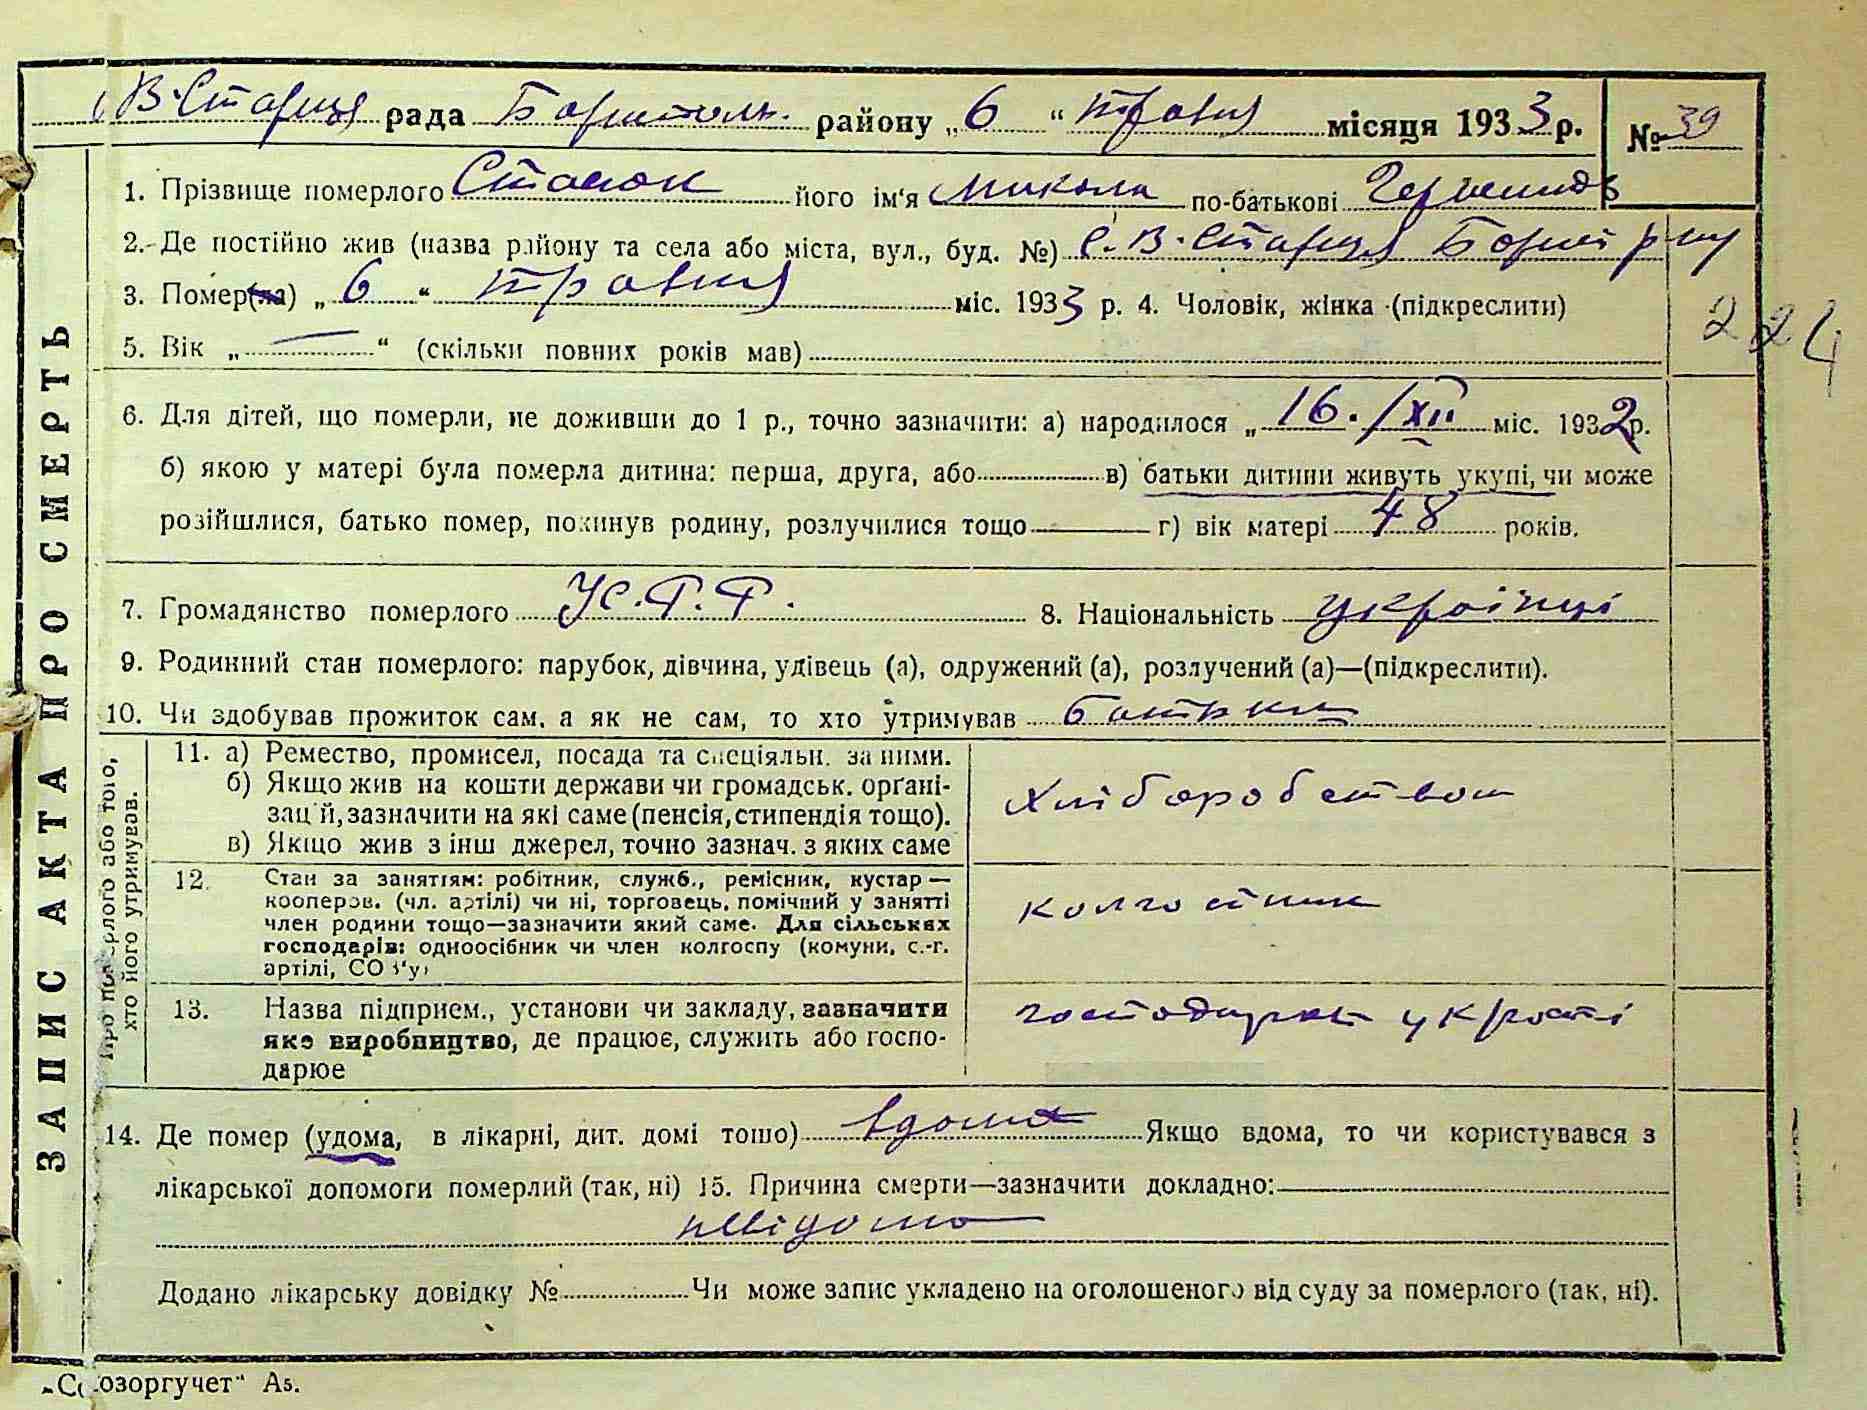 В-Стариця рада Бориспіль. району „6" травня місяця 1933 р. № 39
1. Прізвище померлого його ім'я Микола по-батькові
2. Де постійно жив (назва району та села або міста, вул., буд. №) с. В-Стариця Борисп р-ну
3. Помер(ла) „6" травня міс. 1933 р. 4. Чоловік, жінка (підкреслити)
224
5. Вік „—" (скільки повних років мав)
6. Для дітей, що померли, не доживши до 1 р., точно зазначити: а) народилося „16./XII міс. 1932р.
б) якою у матері була померла дитина: перша, друга, або в) батьки дитини живуть укупі, чи може
розійшлися, батько помер, покинув родину, розлучилися тощо г) вік матері 48 років.
7. Громадянство померлого 8. Національність українці
9. Родинний стан померлого: парубок, дівчина, удівець (а), одружений (а), розлучений (а)—(підкреслити).
10. Чи здобував прожиток сам, а як не сам, то хто утримував батьки
Про померлого або того, хто його утримував.
11. а) Ремество, промисел, посада та спеціяльн. за ними.
б) Якщо жив на кошти держави чи громадськ. орґані-
зац й, зазначити на які саме (пенсія, стипендія тощо).
в) Якщо жив з інш джерел, точно зазнач. з яких саме
хліборобство
12. Стан за заняттям: робітник, служб., ремісник, кустар —
кооперов. (чл. артілі) чи ні, торговець, помічний у занятті
член родини тощо—зазначити який саме. Для сільських
господарів: одноосібник чи член колгоспу (комуни, с.-г.
артілі, СО З'у)
колгоспник
13. Назва підприєм., установи чи закладу, зазначити
яке виробництво, де працює, служить або госпо-
дарює
14. Де помер (удома, в лікарні, дит. домі тощо) вдома Якщо вдома, то чи користувався з
лікарської допомоги померлий (так, ні) 15. Причина смерти—зазначити докладно:
невідомо
Додано лікарську довідку № Чи може запис укладено на оголошеного від суду за померлого (так, ні).
ЗАПИС АКТА ПРО СМЕРТЬ
„Союзоргучет" А5.